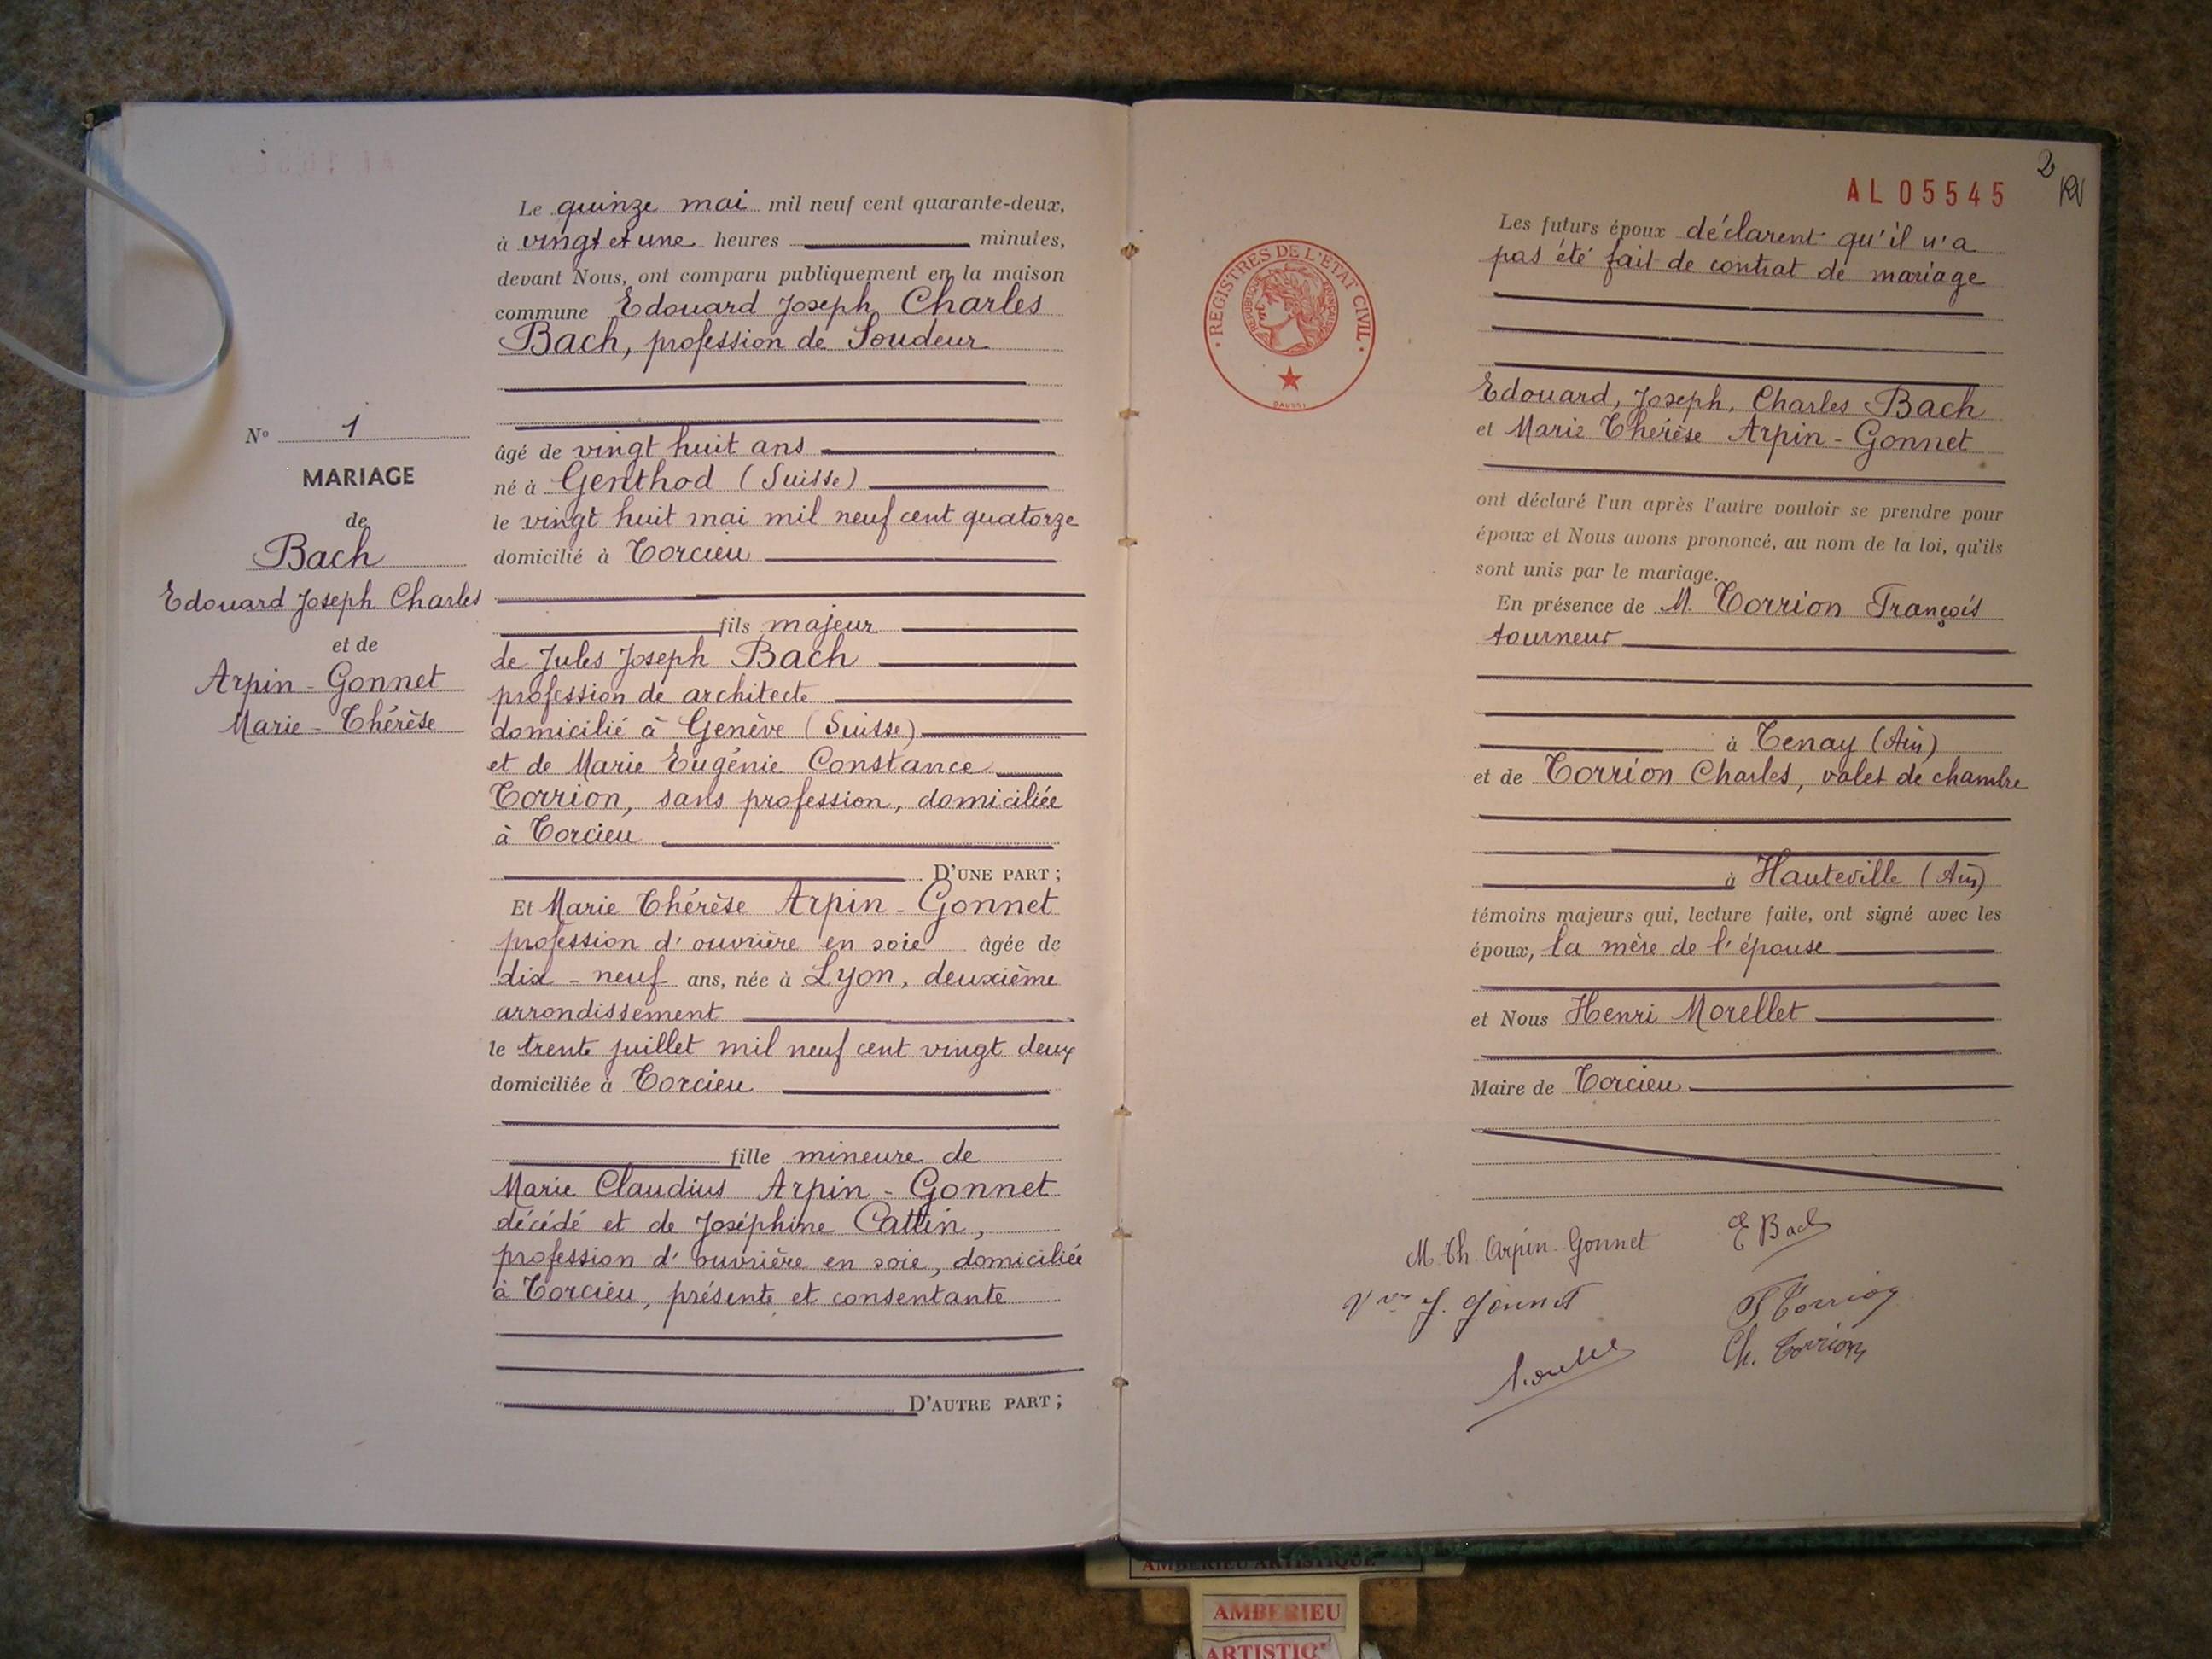 N° 1
MARIAGE
de
Bach
Edouard Joseph Charles
et de
Arpin - Gonnet
Marie - Thérèse
Le quinze mai mil neuf cent quarante-deux,
à vingt et une heures minutes,
devant Nous, ont comparu publiquement en la maison
commune Edouard Joseph Charles
Bach, profession de Soudeur
âgé de vingt huit ans
né à Genthod (Suisse)
le vingt huit mai mil neuf cent quatorze
domicilié à Torcieu
fils majeur
de Jules Joseph Bach
profession de architecte
domicilié à Genève (Suisse)
et de Marie Eugénie Constance
Torrion, sans profession, domiciliée
à Torcieu
D'UNE PART ;
Et Marie Thérèse Arpin - Gonnet
profession d'ouvrière en soie âgée de
dix - neuf ans, née à Lyon, deuxième
arrondissement
le trente juillet mil neuf cent vingt deux
domiciliée à Torcieu
fille mineure de
Marie Claudius Arpin - Gonnet
décédé et de Joséphine Cattin,
profession d'ouvrière en soie, domiciliée
à Torcieu, présente et consentante
D'AUTRE PART ;
2
AL 05545
REGISTRES DE L'ETAT CIVIL
Les futurs époux déclarent qu'il n'a
pas été fait de contrat de mariage
Edouard, Joseph, Charles Bach
et Marie Thérèse Arpin - Gonnet
ont déclaré l'un après l'autre vouloir se prendre pour
époux et Nous avons prononcé, au nom de la loi, qu'ils
sont unis par le mariage.
En présence de M. Torrion François
tourneur
à Tenay (Ain)
et de Torrion Charles, valet de chambre
à Hauteville (Ain)
témoins majeurs qui, lecture faite, ont signé avec les
époux, la mère de l'épouse
et Nous Henri Morellet
Maire de Torcieu
M. Th. Arpin-Gonnet E Bach
Vve J. Gonnet F Torrion
Ch. Torrion
AMBERIEU ARTISTIQUE
AMBERIEU
ARTISTIQ